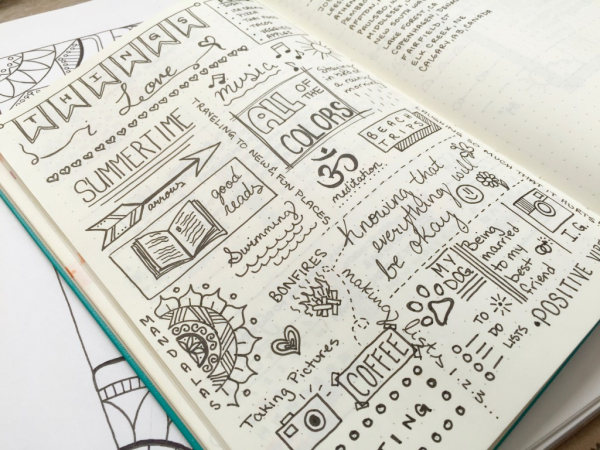 THINGS
i Love
SUMMERTIME
arrows
good
reads
MANDALAS
music
ALL OF
THE
COLORS
TRAVELING TO NEW & FUN PLACES
Swimming
BONFIRES
Taking Pictures
ॐ
meditation
BEACH
TRIPS
Knowing that
everything will
be okay
making lists
COFFEE
MY
DOG
Being
married
to my
best
friend
I.G.
TO
DO
LISTS
1
2
3
• POSITIVE
TING
MUCH THAT IT HURTS
LAKE FOREST, CA
COPENHAGEN, DENMARK
FAIRFIELD, CT
ELK CREEK, NE
CALGARY, AB, CANADA